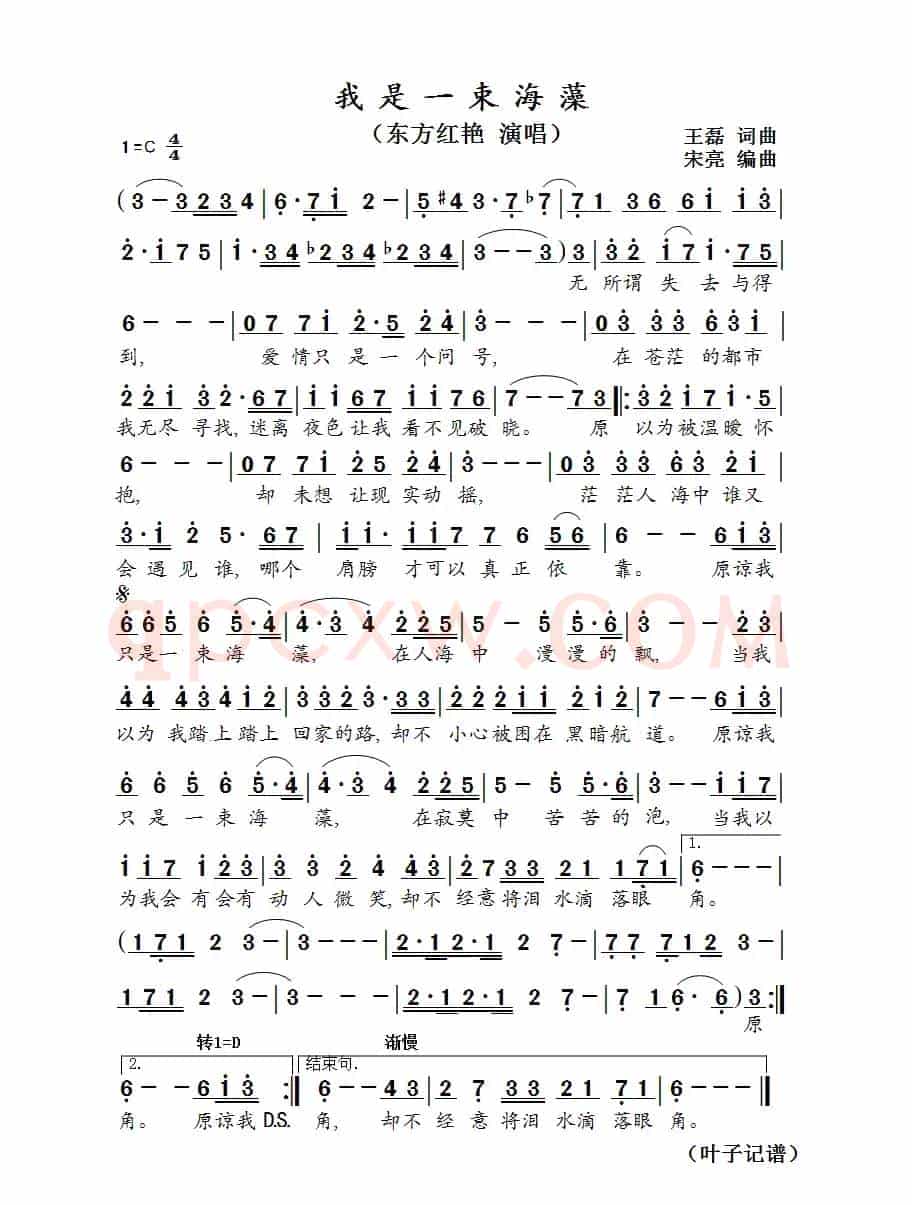 我是一束海藻
（东方红艳 演唱）
1=C 4/4
王磊 词曲
宋亮 编曲
(3-3234|6·71 2-|5#43·7b7|71 36 61 13|
2·175|1·34b234b234|3--3)3|32 17 1·75|
无所谓失去与得
6--|07 71 2·5 24|3--|03 33 63 51|
到, 爱情只是一个问号, 在苍茫的都市
221 32·67|11167 1176|7--73‖:3217 1·5|
我无尽寻找,迷离夜色让我看不见破晓。 原 以为被温暧怀
6--|07 71 25 24|3--|03 33 63 21|
抱, 却未想让现实动摇, 茫茫人海中谁又
3·1 2 5·67|11·1177 6 56|6--613|
会遇见谁,哪个肩膀才可以真正依靠。 原谅我
665 6 5·4|4·34 225|5-55·6|3--23|
只是一束海藻, 在人海中漫漫的飘, 当我
44 4341|3323·33|2-22211 21 22|7--613|
以为我踏上踏上回家的路,却不小心被困在黑暗航道。 原谅我
66565·4|4·34 225|5-55·6|3--117|
只是一束海藻, 在寂莫中苦苦的泡, 当我以
1.
117 123|3 32 43|2733 21 171|6--|
为我会有会有动人微笑,却不经意将泪水滴落眼角。
(171 23-|3--|2·12·1 27-|77 7123|
171 23-|3--|2·12·1 27-|6716·6)3:‖
原
转1=D
渐慢
2.
结束句.
6--613:‖6--43|27 33 21 71|6--‖
角。 原谅我D.S. 角, 却不经意将泪水滴落眼角。
（叶子记谱）
qpcxw.COM